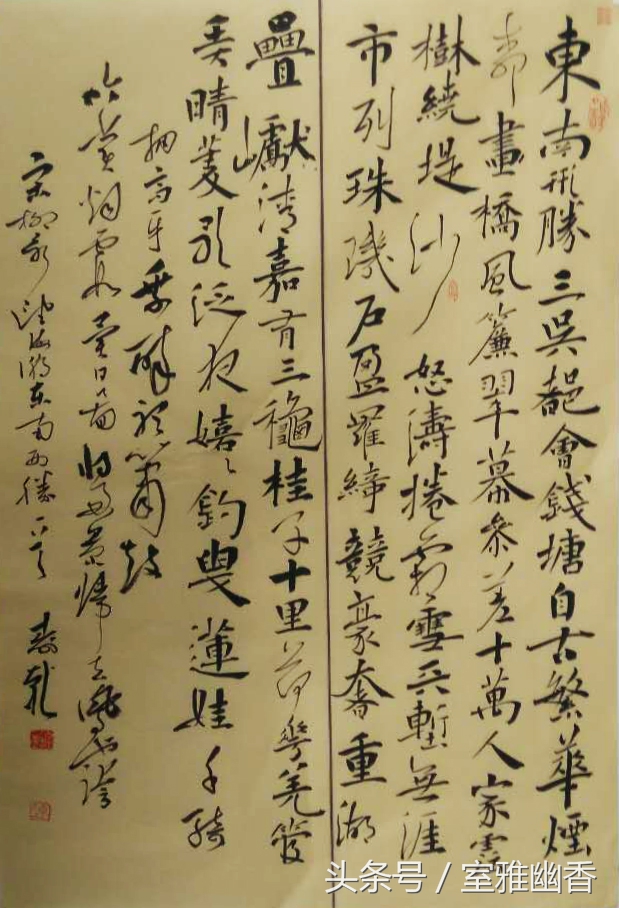 東南形勝三吳都會錢塘自古繁華煙
柳畫橋風簾翠幕參差十萬人家雲
樹繞堤沙怒濤捲霜雪天塹無涯
市列珠璣戶盈羅綺競豪奢重湖
疊巘清嘉有三龝桂子十里荷花羌管
弄晴菱歌泛夜嬉〻釣叟蓮娃千騎
擁高牙乘醉聽簫鼓
吟賞烟霞異日圖將好景歸去鳳池誇
宋柳永望海潮東南形勝
头条号 / 室雅幽香